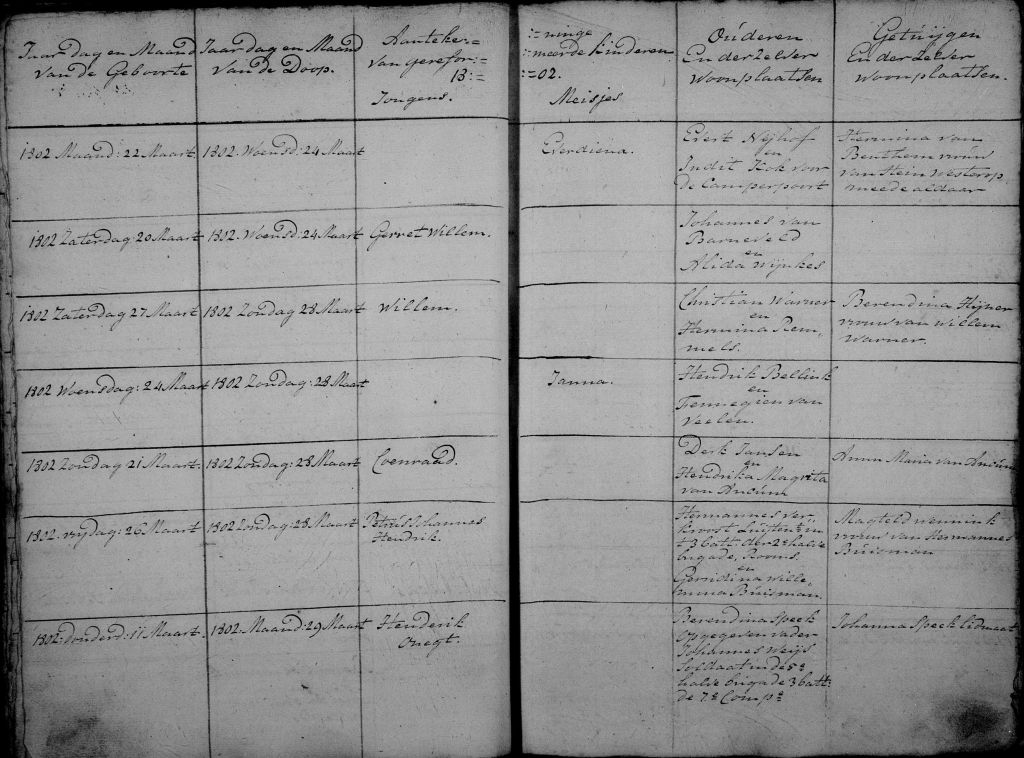 Jaar dag en Maand
van de Geboorte
Jaar dag en Maand
van de Doop.
Aanteke:=
van gerefor:=
18:=
Jongens.
:=ninge
:=meerde kinderen
:=02.
Meisjes
Ouderen
En derzelver
woonplaatsen
Getuijgen
En derzelver
woonplaatsen.
1802 Maand: 22 Maart
1802. Woensd: 24 Maart
Everdiena.
Evert Nijhof
en
Judit Kok voor
de Camperpoort
Hermina van
Benthem vrouw
van Stein Westerop
meede aldaar
1802 Zaterdag 20 Maart
1802. Woensd: 24 Maart
Gerret Willem.
Johannes van
Barneveld
en
Alida Wijnkes
1802 Zaterdag 27 Maart
1802 Zondag 28 Maart
Willem.
Christian Warner
en
Hermina Rem,
mels.
Berendina
vrouw van Willem
Warner.
1802 Woensdag: 24 Maart
1802 Zondag: 28 Maart
Janna.
Hendrik Bellink
en
Fennegien van
Veelen.
1802 Zondag 21 Maart.
1802 Zondag: 28 Maart
Coenraad.
Derk Jansen
en
Hendrika Magrita
van Ancum
Anna Maria van Ancum
1802. vrijdag: 26 Maart
1802 Zondag: 28 Maart
Petrus Johannes
Hendrik.
Hermannes ver,
in
3 batt: der 2e halve
brigade, Rooms.
en
Gerridina Wille,
mina Buisman.
Magteld Wennink
vrouw van Hermannes
Buisman
1802: donderd: 11 Maart.
1802. Maand: 29 Maart
Henderik
Onegt.
Berendina Speek
opgegeven vader
Johannes Weijs
Soldaat in de 5e
halve brigade 3 batt:
de 7e Compe
Johanna Speek lidmaat